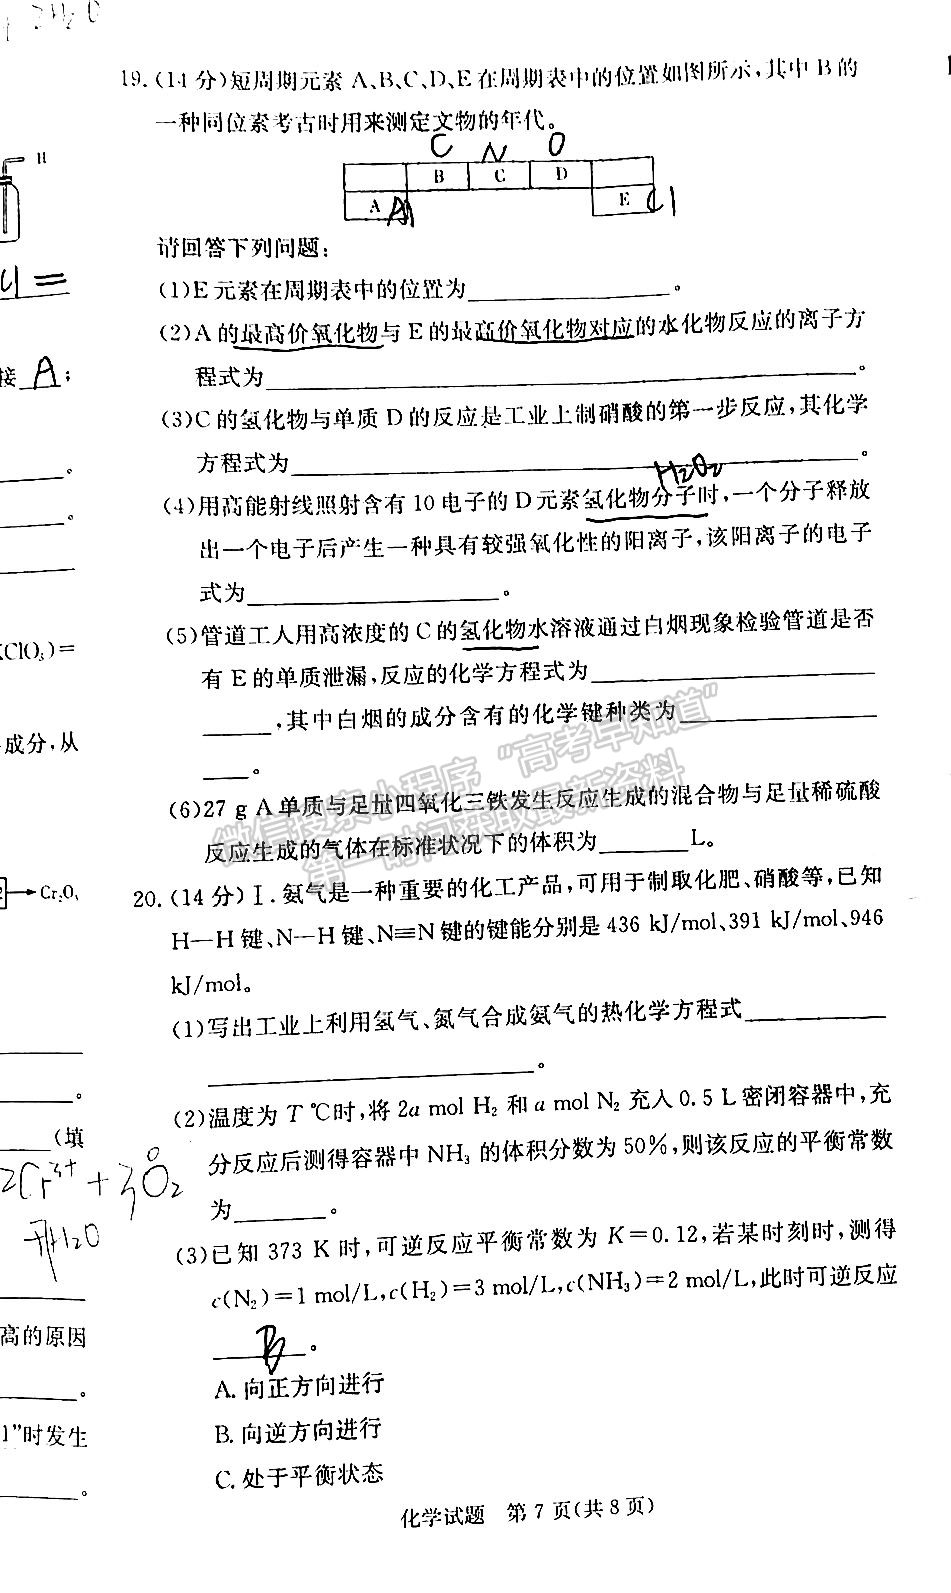 2H₂O
19.(14 分)短周期元素 A、B、C、D、E 在周期表中的位置如图所示,其中 B 的
一种同位素考古时用来测定文物的年代。
H
C N O
B C D
A Al E Cl
请回答下列问题:
Cl =
(1)E 元素在周期表中的位置为____________。
(2)A 的最高价氧化物与 E 的最高价氧化物对应的水化物反应的离子方
接 A ;
程式为____________。
(3)C 的氢化物与单质 D 的反应是工业上制硝酸的第一步反应,其化学
方程式为____________。
H₂O₂
(4)用高能射线照射含有 10 电子的 D 元素氢化物分子时,一个分子释放
出一个电子后产生一种具有较强氧化性的阳离子,该阳离子的电子
式为____________。
(5)管道工人用高浓度的 C 的氢化物水溶液通过白烟现象检验管道是否
ClO₃)=
有 E 的单质泄漏,反应的化学方程式为____________
____,其中白烟的成分含有的化学键种类为____________
成分,从
____。
微信搜索小程序“高考早知道”
第一时间获取最新资料
(6)27 g A 单质与足量四氧化三铁发生反应生成的混合物与足量稀硫酸
反应生成的气体在标准状况下的体积为______L。
→Cr₂O₃
20.(14 分)Ⅰ.氨气是一种重要的化工产品,可用于制取化肥、硝酸等,已知
H—H 键、N—H 键、N≡N 键的键能分别是 436 kJ/mol、391 kJ/mol、946
kJ/mol。
(1)写出工业上利用氢气、氮气合成氨气的热化学方程式____________
____________。
(2)温度为 T ℃时,将 2a mol H₂ 和 a mol N₂ 充入 0.5 L 密闭容器中,充
(填
分反应后测得容器中 NH₃ 的体积分数为 50%,则该反应的平衡常数
2Cr³⁺+3O₂
为______。
(3)已知 373 K 时,可逆反应平衡常数为 K=0.12,若某时刻时,测得
c(N₂)=1 mol/L,c(H₂)=3 mol/L,c(NH₃)=2 mol/L,此时可逆反应
高的原因
B 。
A. 向正方向进行
1”时发生
B. 向逆方向进行
C. 处于平衡状态
化学试题 第 7 页(共 8 页)